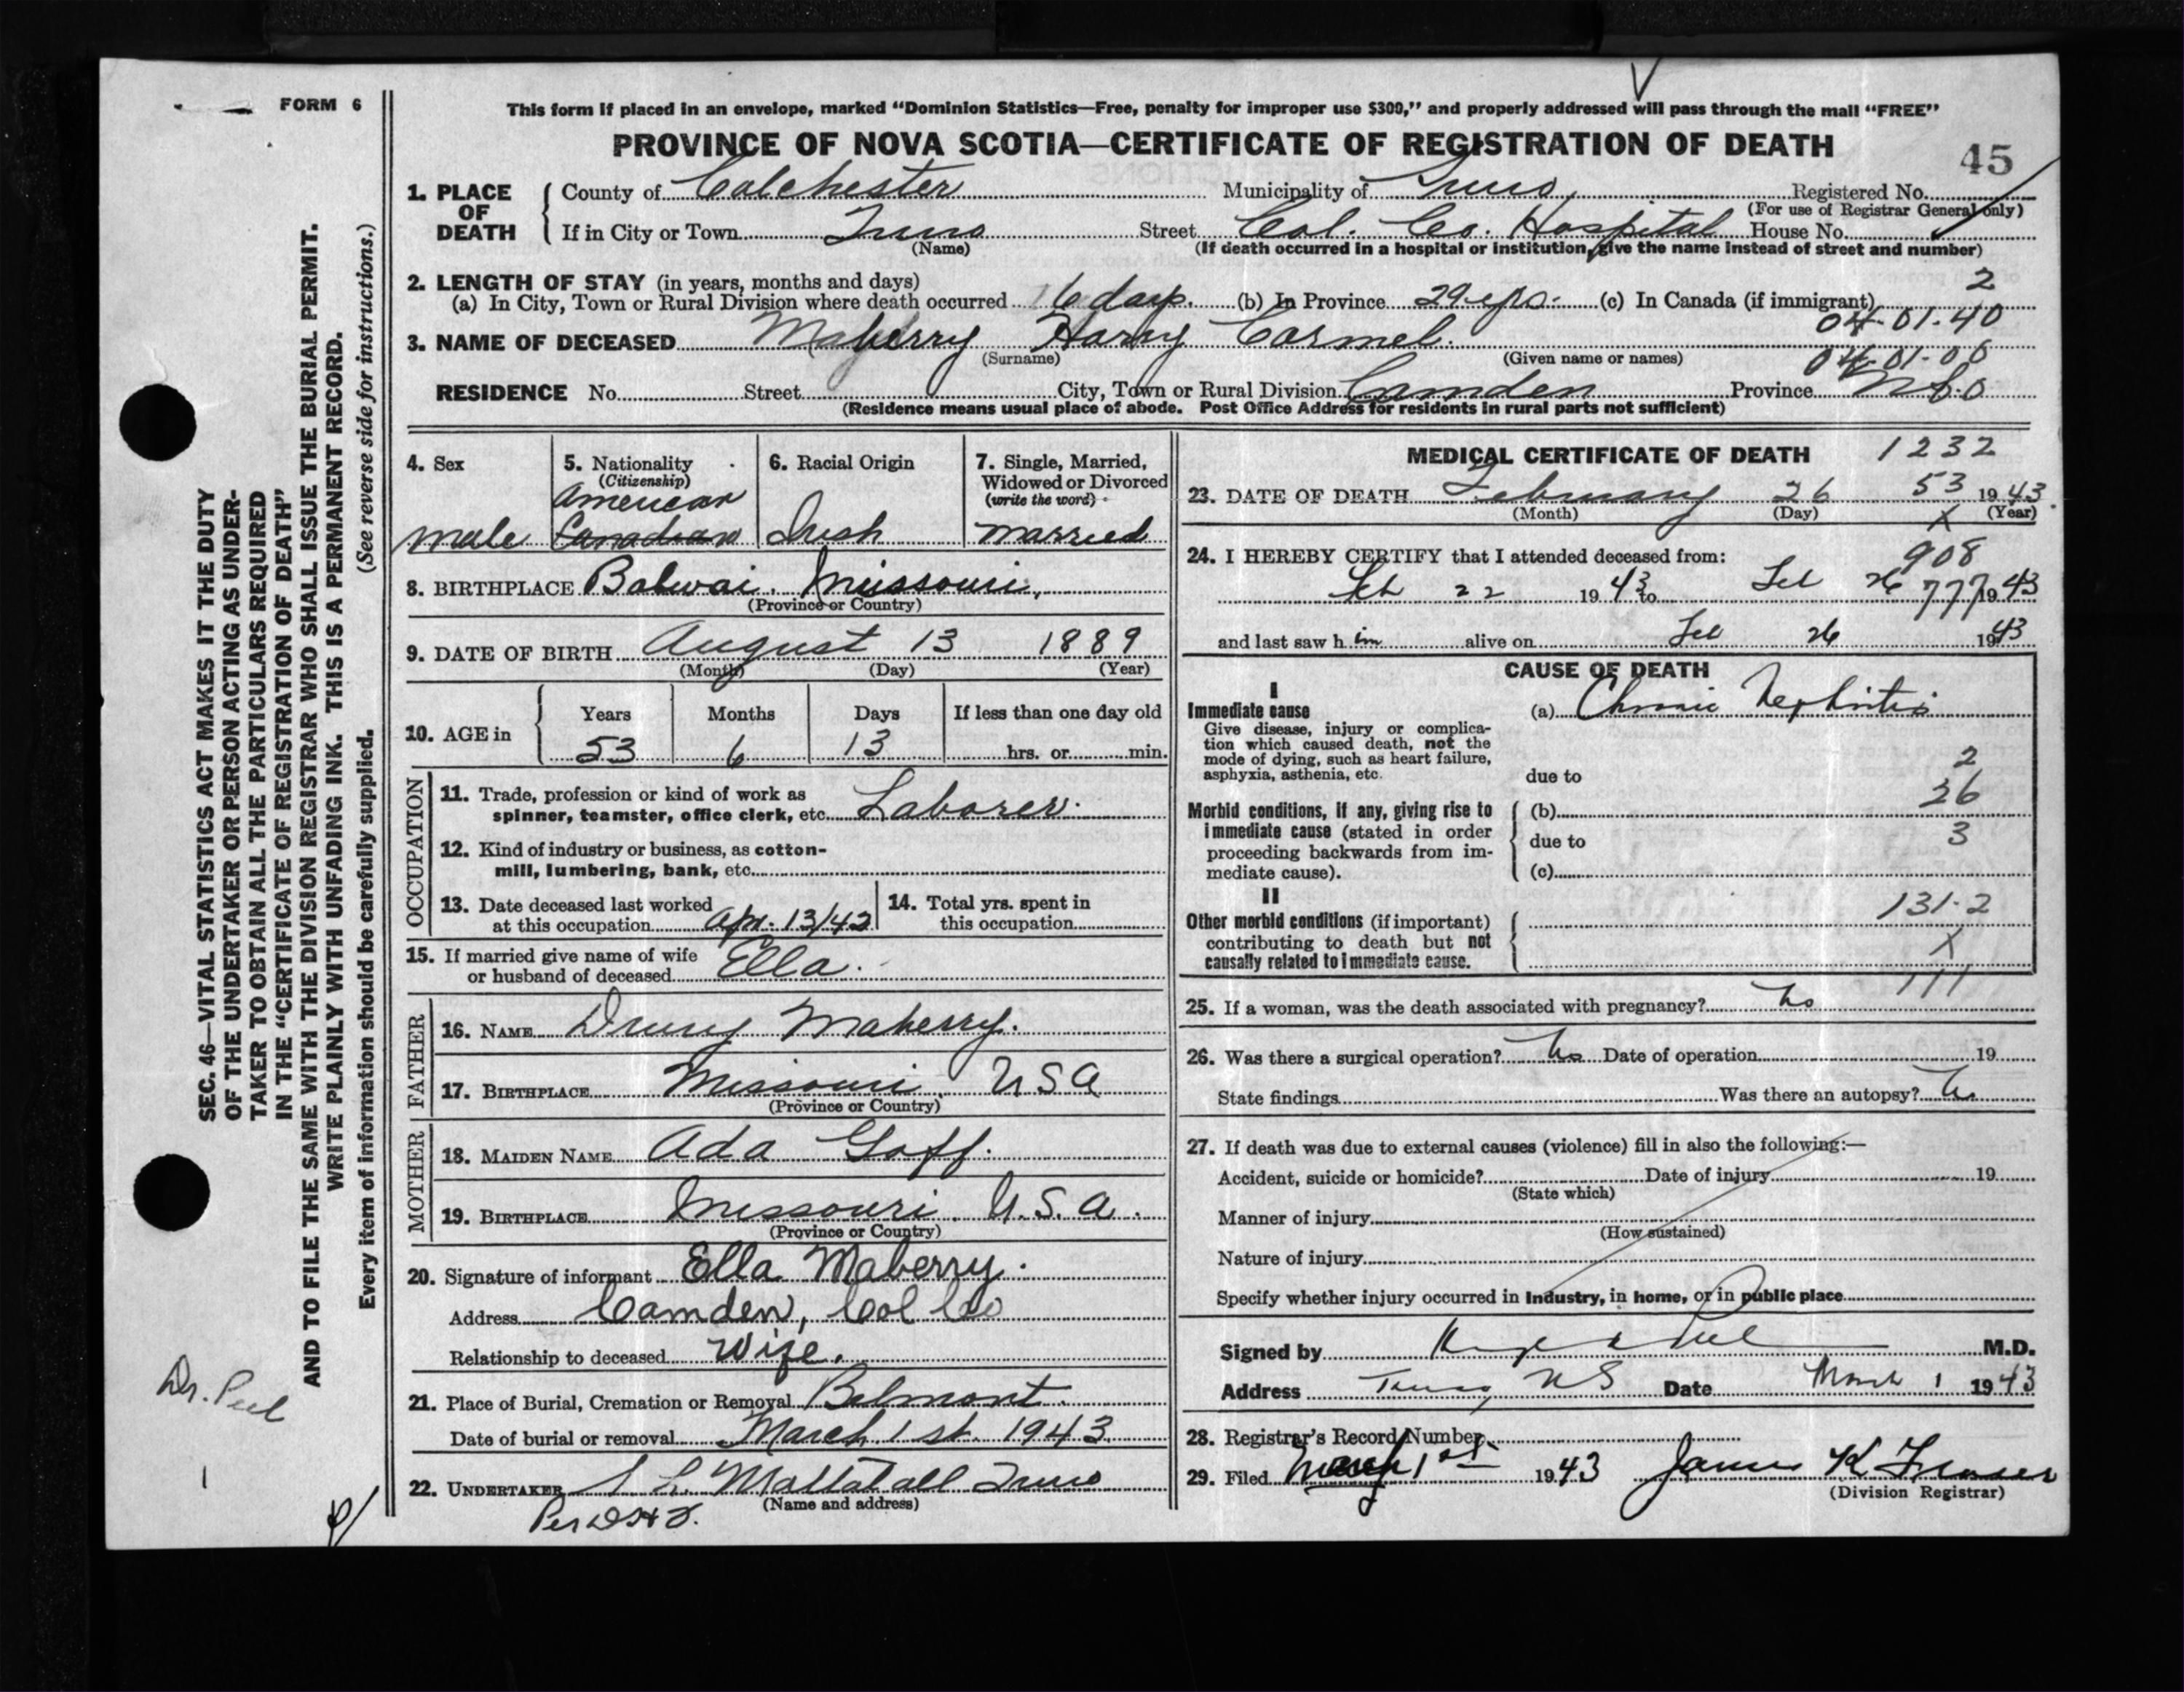 FORM 6
This form if placed in an envelope, marked “Dominion Statistics—Free, penalty for improper use $300,” and properly addressed will pass through the mail “FREE”
PROVINCE OF NOVA SCOTIA—CERTIFICATE OF REGISTRATION OF DEATH
45
1. PLACE OF DEATH
County of Colchester Municipality of Truro Registered No.
(For use of Registrar General only)
If in City or Town Truro Street Col. Co. Hospital House No.
(Name) (If death occurred in a hospital or institution, give the name instead of street and number)
2. LENGTH OF STAY (in years, months and days)
(a) In City, Town or Rural Division where death occurred 6 days. (b) In Province 29 yrs. (c) In Canada (if immigrant) 2
04-01-40
3. NAME OF DECEASED Maberry Harry Carmel.
(Surname) (Given name or names) 04-01-00
RESIDENCE No. Street City, Town or Rural Division Camden Province N.S. 0
(Residence means usual place of abode. Post Office Address for residents in rural parts not sufficient)
4. Sex
male
5. Nationality
(Citizenship)
American
Canadian
6. Racial Origin
Irish
7. Single, Married,
Widowed or Divorced
(write the word)
married
8. BIRTHPLACE Missouri.
(Province or Country)
9. DATE OF BIRTH August 13 1889
(Month) (Day) (Year)
10. AGE in
Years Months Days If less than one day old
53 6 13 hrs. or min.
OCCUPATION
11. Trade, profession or kind of work as
spinner, teamster, office clerk, etc. Laborer.
12. Kind of industry or business, as cotton-
mill, lumbering, bank, etc.
13. Date deceased last worked
at this occupation Apr. 13/42
14. Total yrs. spent in
this occupation
15. If married give name of wife
or husband of deceased Ella.
FATHER
16. NAME Drury Maberry.
17. BIRTHPLACE Missouri. USA
(Province or Country)
MOTHER
18. MAIDEN NAME Ada Goff.
19. BIRTHPLACE Missouri. U.S.A.
(Province or Country)
20. Signature of informant Ella Maberry.
Address Camden, Col Co
Relationship to deceased Wife.
21. Place of Burial, Cremation or Removal Belmont.
Date of burial or removal March 1st. 1943
22. UNDERTAKER Mattatall Truro
(Name and address)
Per
MEDICAL CERTIFICATE OF DEATH 1232
23. DATE OF DEATH February 26 53 1943
(Month) (Day) X (Year)
24. I HEREBY CERTIFY that I attended deceased from:
908
Feb 22 1943 to Feb 26 777 1943
and last saw h im alive on Feb 26 1943
CAUSE OF DEATH
I
Immediate cause
Give disease, injury or complica-
tion which caused death, not the
mode of dying, such as heart failure,
asphyxia, asthenia, etc.
(a) Chronic Nephritis
due to 2
26
Morbid conditions, if any, giving rise to
immediate cause (stated in order
proceeding backwards from im-
mediate cause).
(b)
due to 3
(c)
II
Other morbid conditions (if important)
contributing to death but not
causally related to immediate cause.
131-2
X
111
25. If a woman, was the death associated with pregnancy? No
26. Was there a surgical operation? No Date of operation 19
State findings Was there an autopsy? No
27. If death was due to external causes (violence) fill in also the following:—
Accident, suicide or homicide? Date of injury 19
(State which)
Manner of injury
(How sustained)
Nature of injury
Specify whether injury occurred in Industry, in home, or in public place
Signed by Peel M.D.
Address Truro, NS Date March 1 1943
28. Registrar's Record Number
29. Filed March 1st 1943 James K Fraser
(Division Registrar)
SEC. 46—VITAL STATISTICS ACT MAKES IT THE DUTY
OF THE UNDERTAKER OR PERSON ACTING AS UNDER-
TAKER TO OBTAIN ALL THE PARTICULARS REQUIRED
IN THE “CERTIFICATE OF REGISTRATION OF DEATH”
AND TO FILE THE SAME WITH THE DIVISION REGISTRAR WHO SHALL ISSUE THE BURIAL PERMIT.
WRITE PLAINLY WITH UNFADING INK. THIS IS A PERMANENT RECORD.
Every item of information should be carefully supplied. (See reverse side for instructions.)
Dr. Peel
1